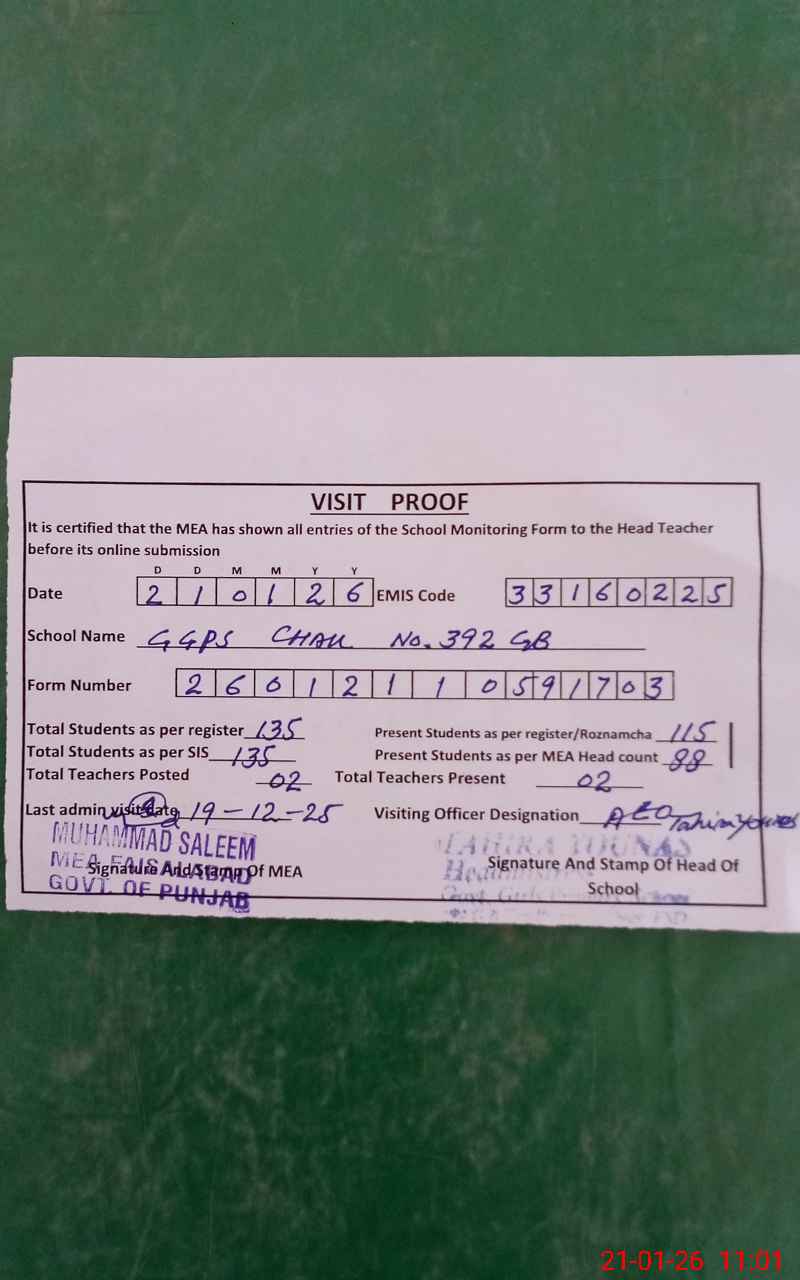 VISIT PROOF
It is certified that the MEA has shown all entries of the School Monitoring Form to the Head Teacher
before its online submission
D D M M Y Y
Date 2 1 0 1 2 6 EMIS Code 3 3 1 6 0 2 2 5
School Name GGPS CHAK No. 392 GB
Form Number 2 6 0 1 2 1 1 1 0 5 9 1 7 0 3
Total Students as per register 135 Present Students as per register/Roznamcha 115
Total Students as per SIS 135 Present Students as per MEA Head count 88
Total Teachers Posted 02 Total Teachers Present 02
Last admin visit date 19-12-25 Visiting Officer Designation AEO
MUHAMMAD SALEEM
MEA FAISALABAD
GOVT. OF PUNJAB
Signature And Stamp Of MEA
TAHIRA YOUNAS
Signature And Stamp Of Head Of
School
21-01-26 11:01